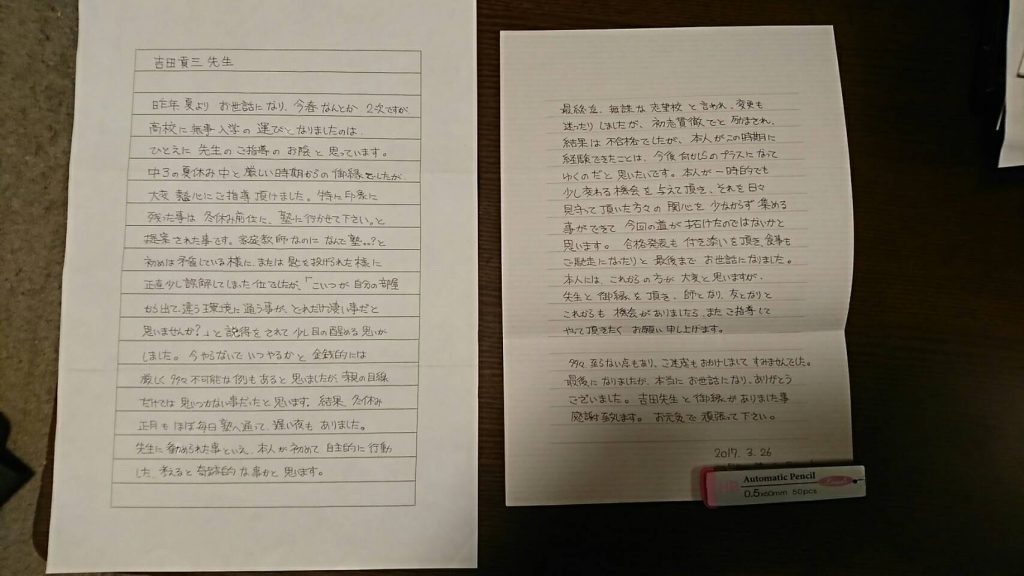 吉田貢三先生
昨年夏より お世話になり、今春なんとか 2次ですが
高校に無事入学の運びとなりましたのは、
ひとえに 先生のご指導のお陰と思っています。
中3の夏休み中と厳しい時期からの御縁でしたが
大変熱心にご指導頂けました。特に印象に
残った事は 冬休み前位に、塾に行かせて下さい。と
提案された事です。家庭教師なのに なんで塾..?と
初めは矛盾している様に、または匙を投げられた様に
正直少し誤解してしまった位でしたが、「こいつが自分の部屋
から出て、違う環境に通う事が、どれだけ凄い事だと
思いませんか?」と説得をされて少し目の醒める思いが
しました。今やらないで いつやるかと 金銭的には
厳しく 多々不可能な例もあると思いましたが、親の目線
だけでは思いつかない事だったと思います。結果、冬休み
正月もほぼ毎日塾へ通って、遅い夜もありました。
先生に勧められた事といえ、本人が初めて自主的に行動
した、考えると奇跡的な事かと思います。
最終在、無謀な志望校と言われ、変更も
迷ったりしましたが、初志貫徹でと励まされ、
結果は不合格でしたが、本人がこの時期に
経験できたことは、今後何かしらのプラスになって
ゆくのだと思いたいです。本人が一時的でも
少し変わる機会を与えて頂き、それを日々
見守って頂いた方々の関心を少なからず集める
事ができて今回の道が拓けたのではないかと
思います。合格発表も付き添いを頂き、食事も
ご馳走になったりと最後までお世話になりました。
本人には、これからの方が大変と思いますが、
先生と御縁を頂き、師となり、友となりと
これからも機会がありましたら、またご指導して
やって頂きたくお願い申し上げます。
多々至らない点もあり、ご迷惑もおかけしまして すみませんでした。
最後になりましたが、本当にお世話になり、ありがとう
ございました。吉田先生と御縁がありました事
感謝致します。お元気で頑張って下さい。
2017. 3. 26
Automatic Pencil
0.5x60mm 50pcs